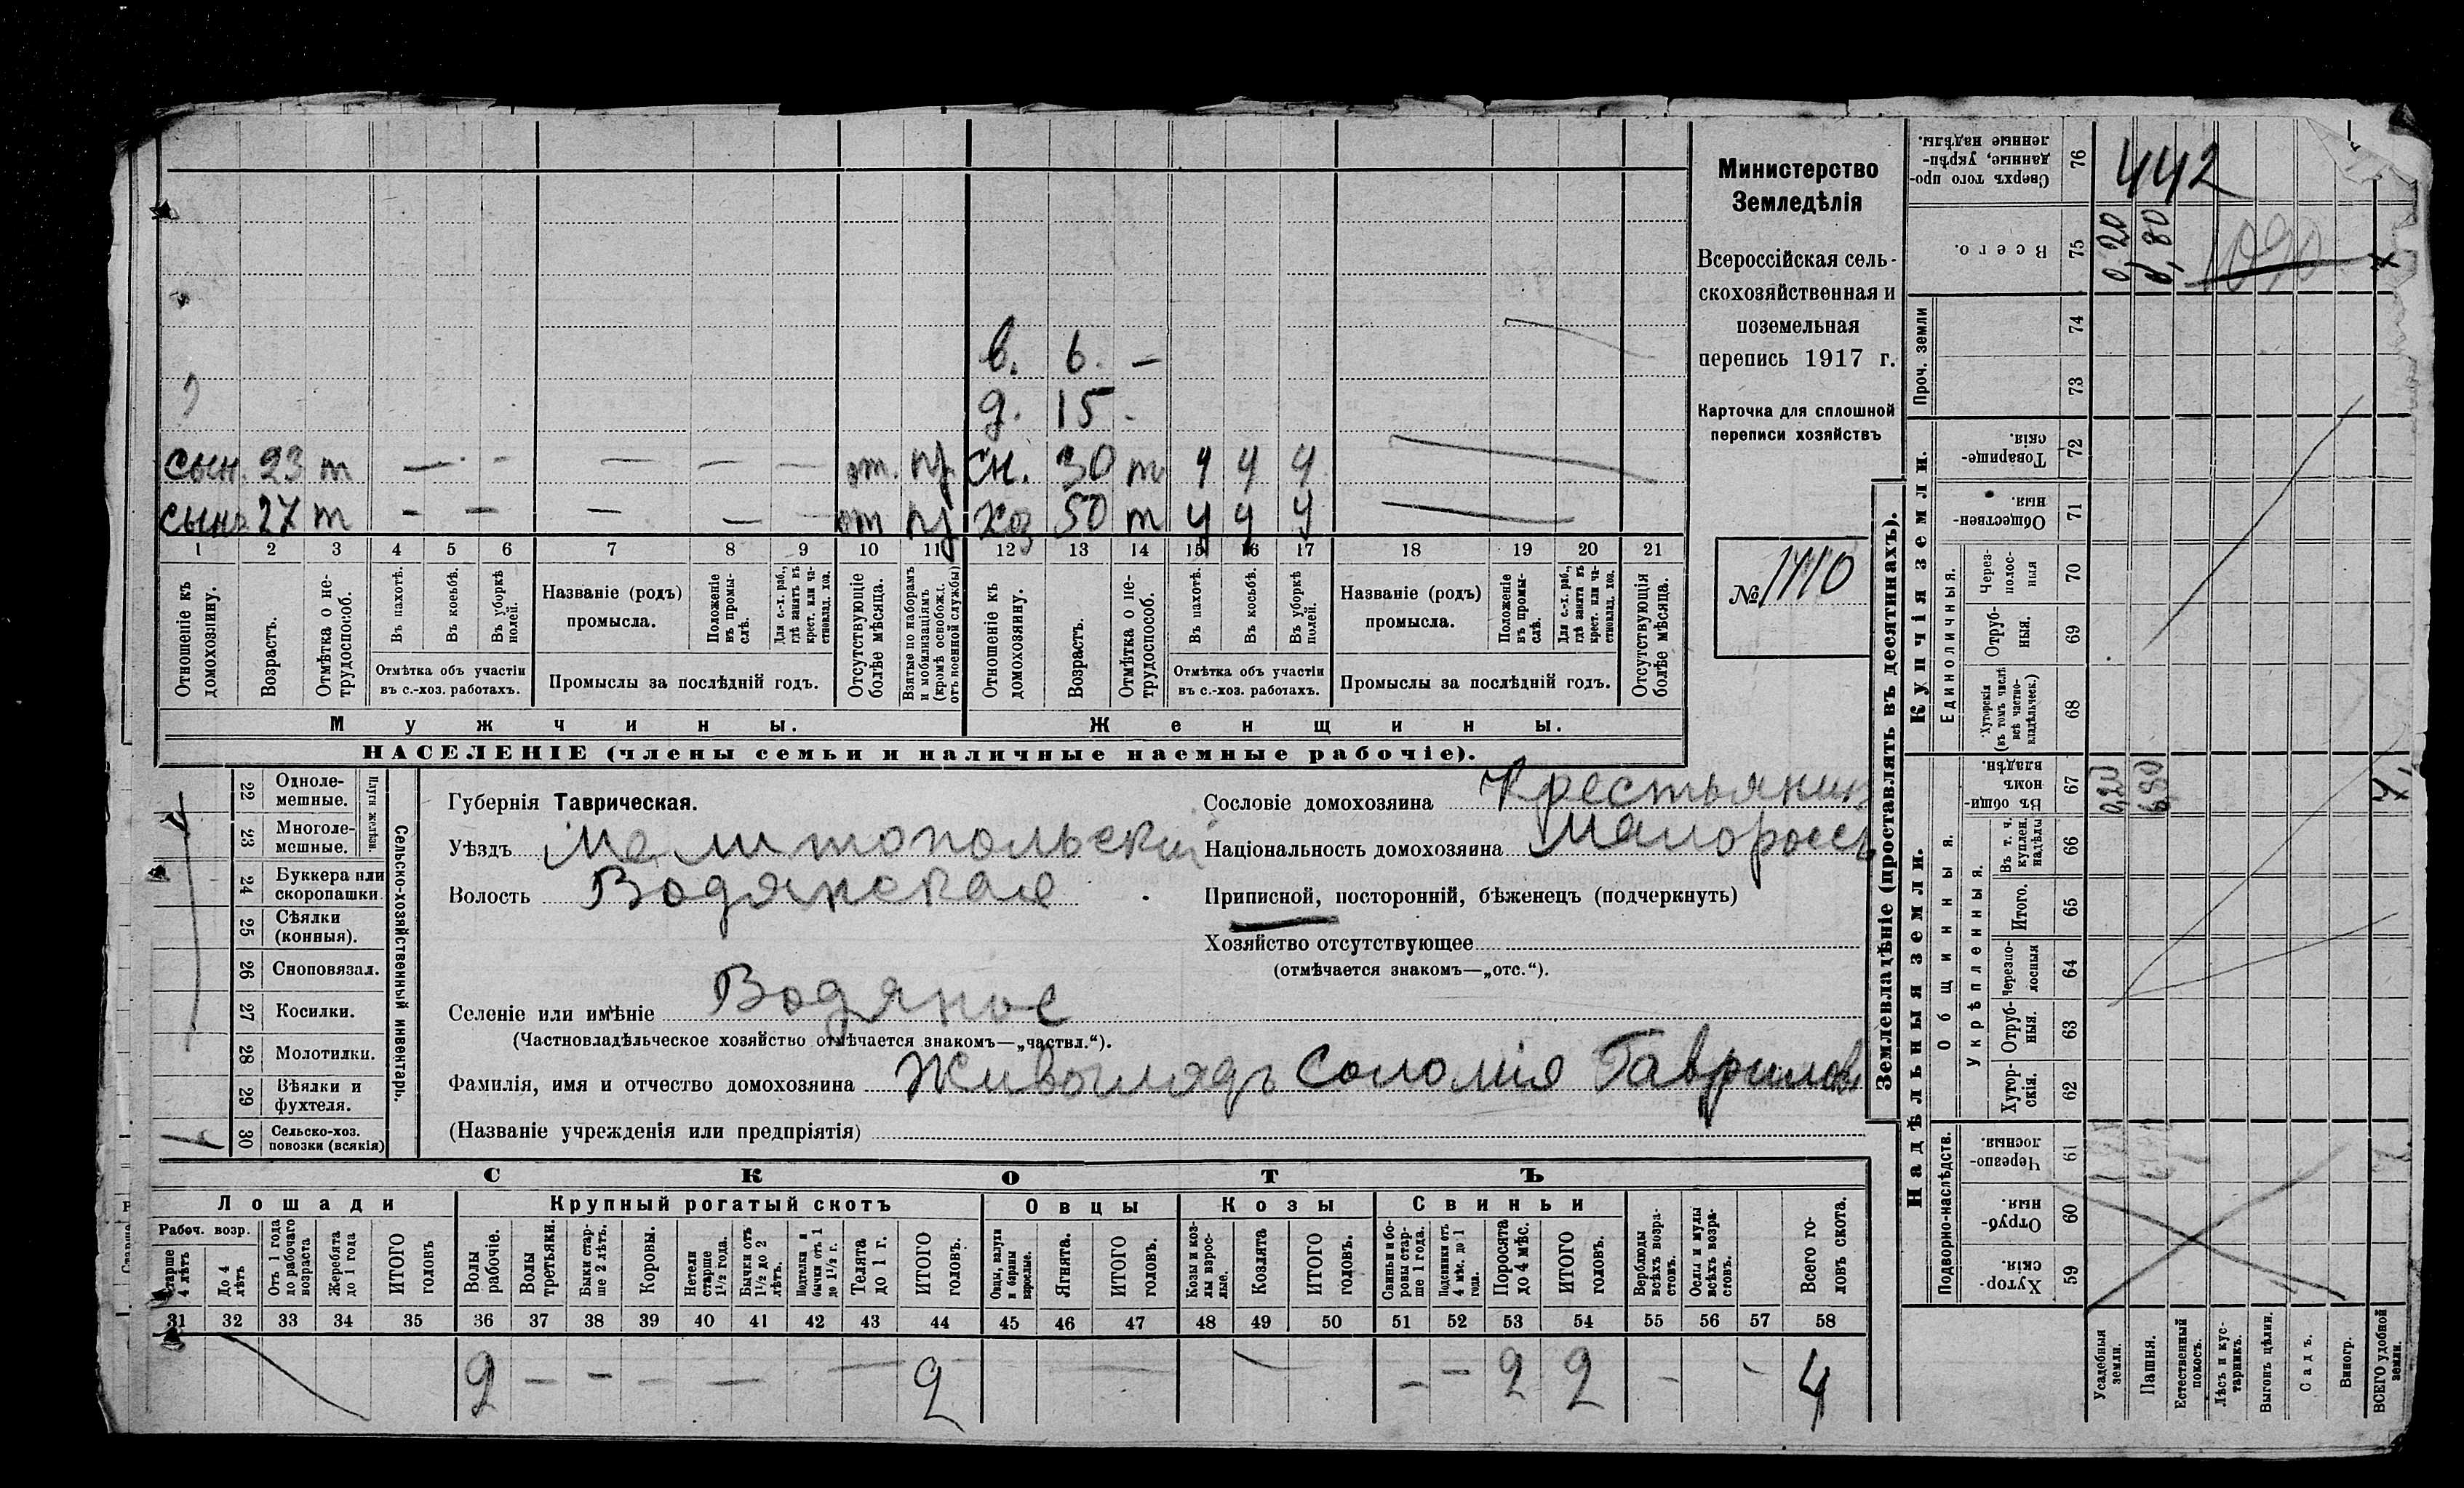 в. 6. —
д. 15 -
сын. 23 т — - — — — от. пр. сн. 30 т ч ч ч
сынъ 27 т - — — — — от пр хоз 50 т ч ч ч
1 2 3 4 5 6 7 8 9 10 11 12 13 14 15 16 17 18 19 20 21
Отношеніе къ домохозяину.
Возрастъ.
Отмѣтка о нетрудоспособ.
Въ пахотѣ.
Въ косьбѣ.
Въ уборкѣ полей.
Отмѣтка объ участіи въ с.-хоз. работахъ.
Названіе (родъ) промысла.
Положеніе въ промыслѣ.
Для с.-х. раб., гдѣ занятъ въ крест. или частновлад. хоз.
Промыслы за послѣдній годъ.
Отсутствующіе болѣе мѣсяца.
Взятые по наборамъ и мобилизаціямъ (кромѣ освобожд. отъ военной службы)
Отношеніе къ домохозяину.
Возрастъ.
Отмѣтка о нетрудоспособ.
Въ пахотѣ.
Въ косьбѣ.
Въ уборкѣ полей.
Отмѣтка объ участіи въ с.-хоз. работахъ.
Названіе (родъ) промысла.
Положеніе въ промыслѣ.
Для с.-х. раб., гдѣ занята въ крест. или частновлад. хоз.
Промыслы за послѣдній годъ.
Отсутствующія болѣе мѣсяца.
Мужчины. Женщины.
НАСЕЛЕНІЕ (члены семьи и наличные наемные рабочіе).
Министерство
Земледѣлія
Всероссійская сель-
скохозяйственная и
поземельная
перепись 1917 г.
Карточка для сплошной
переписи хозяйствъ
№ 1110
22 Одноле-мешные.
23 Многоле-мешные.
Плуги желѣзн.
24 Буккера или скоропашки.
25 Сѣялки (конныя).
26 Сноповязал.
27 Косилки.
28 Молотилки.
29 Вѣялки и фухтеля.
30 Сельско-хоз. повозки (всякія)
Сельско-хозяйственный инвентарь.
Губернія Таврическая.
Уѣздъ Мелитопольскій
Волость Водянская
Селеніе или имѣніе Водяное
(Частновладѣльческое хозяйство отмѣчается знакомъ—„частвл.“).
Фамилія, имя и отчество домохозяина Живоглядъ Соломія Гаврилов
(Названіе учрежденія или предпріятія)
Сословіе домохозяина Крестьянин
Національность домохозяина Малороссъ
Приписной, посторонній, бѣженецъ (подчеркнуть)
Хозяйство отсутствующее
(отмѣчается знакомъ—„отс.“).
СКОТЪ
Лошади Крупный рогатый скотъ Овцы Козы Свиньи
Рабоч. возр.
Старше 4 лѣтъ
До 4 лѣтъ
Отъ 1 года до рабочаго возраста
Жеребята до 1 года
ИТОГО головъ
Волы рабочіе.
Волы третьяки.
Быки старше 2 лѣтъ.
Коровы.
Нетели старше 1½ года.
Бычки отъ 1½ до 2 лѣтъ.
Подтелки и бычки отъ 1 до 1½ г.
Телята до 1 г.
ИТОГО головъ.
Овцы, валухи и бараны взрослые.
Ягнята.
ИТОГО головъ.
Козы и козлы взрослые.
Козлята
ИТОГО головъ.
Свиньи и боровы старше 1 года.
Подсвинки отъ 4 мѣс. до 1 года.
Поросята до 4 мѣс.
ИТОГО головъ.
Верблюды всѣхъ возрастовъ.
Ослы и мулы всѣхъ возрастовъ.
Всего головъ скота.
31 32 33 34 35 36 37 38 39 40 41 42 43 44 45 46 47 48 49 50 51 52 53 54 55 56 57 58
2 - - - — — 2 - — 2 2 - - 4
Землевладѣніе (проставлять въ десятинахъ).
Надѣльныя земли. Купчія земли.
Подворно-наслѣдств.
Общинныя.
Укрѣпленныя.
Единоличныя.
Проч. земли
59 Хуторскія.
60 Отрубныя.
61 Черезполосныя.
62 Хуторскія.
63 Отрубныя.
64 Черезполосныя
65 Итого.
66 Въ т. ч. куплен. надѣлы
67 Въ общинномъ владѣн.
68 Хуторскія (въ томъ числѣ всѣ частновладѣльческ.)
69 Отрубныя.
70 Черезполосныя
71 Общественныя.
72 Товарищескія.
73
74
75 Всего.
76 Сверхъ того проданные, укрѣпленные надѣлы.
442
0,20 6,80
1090
0,20 6,80
Усадебныя земли.
Пашня.
Естественный покосъ.
Лѣсъ и кустарникъ.
Выгонъ цѣлин.
Садъ.
Виногр.
ВСЕГО удобной земли.